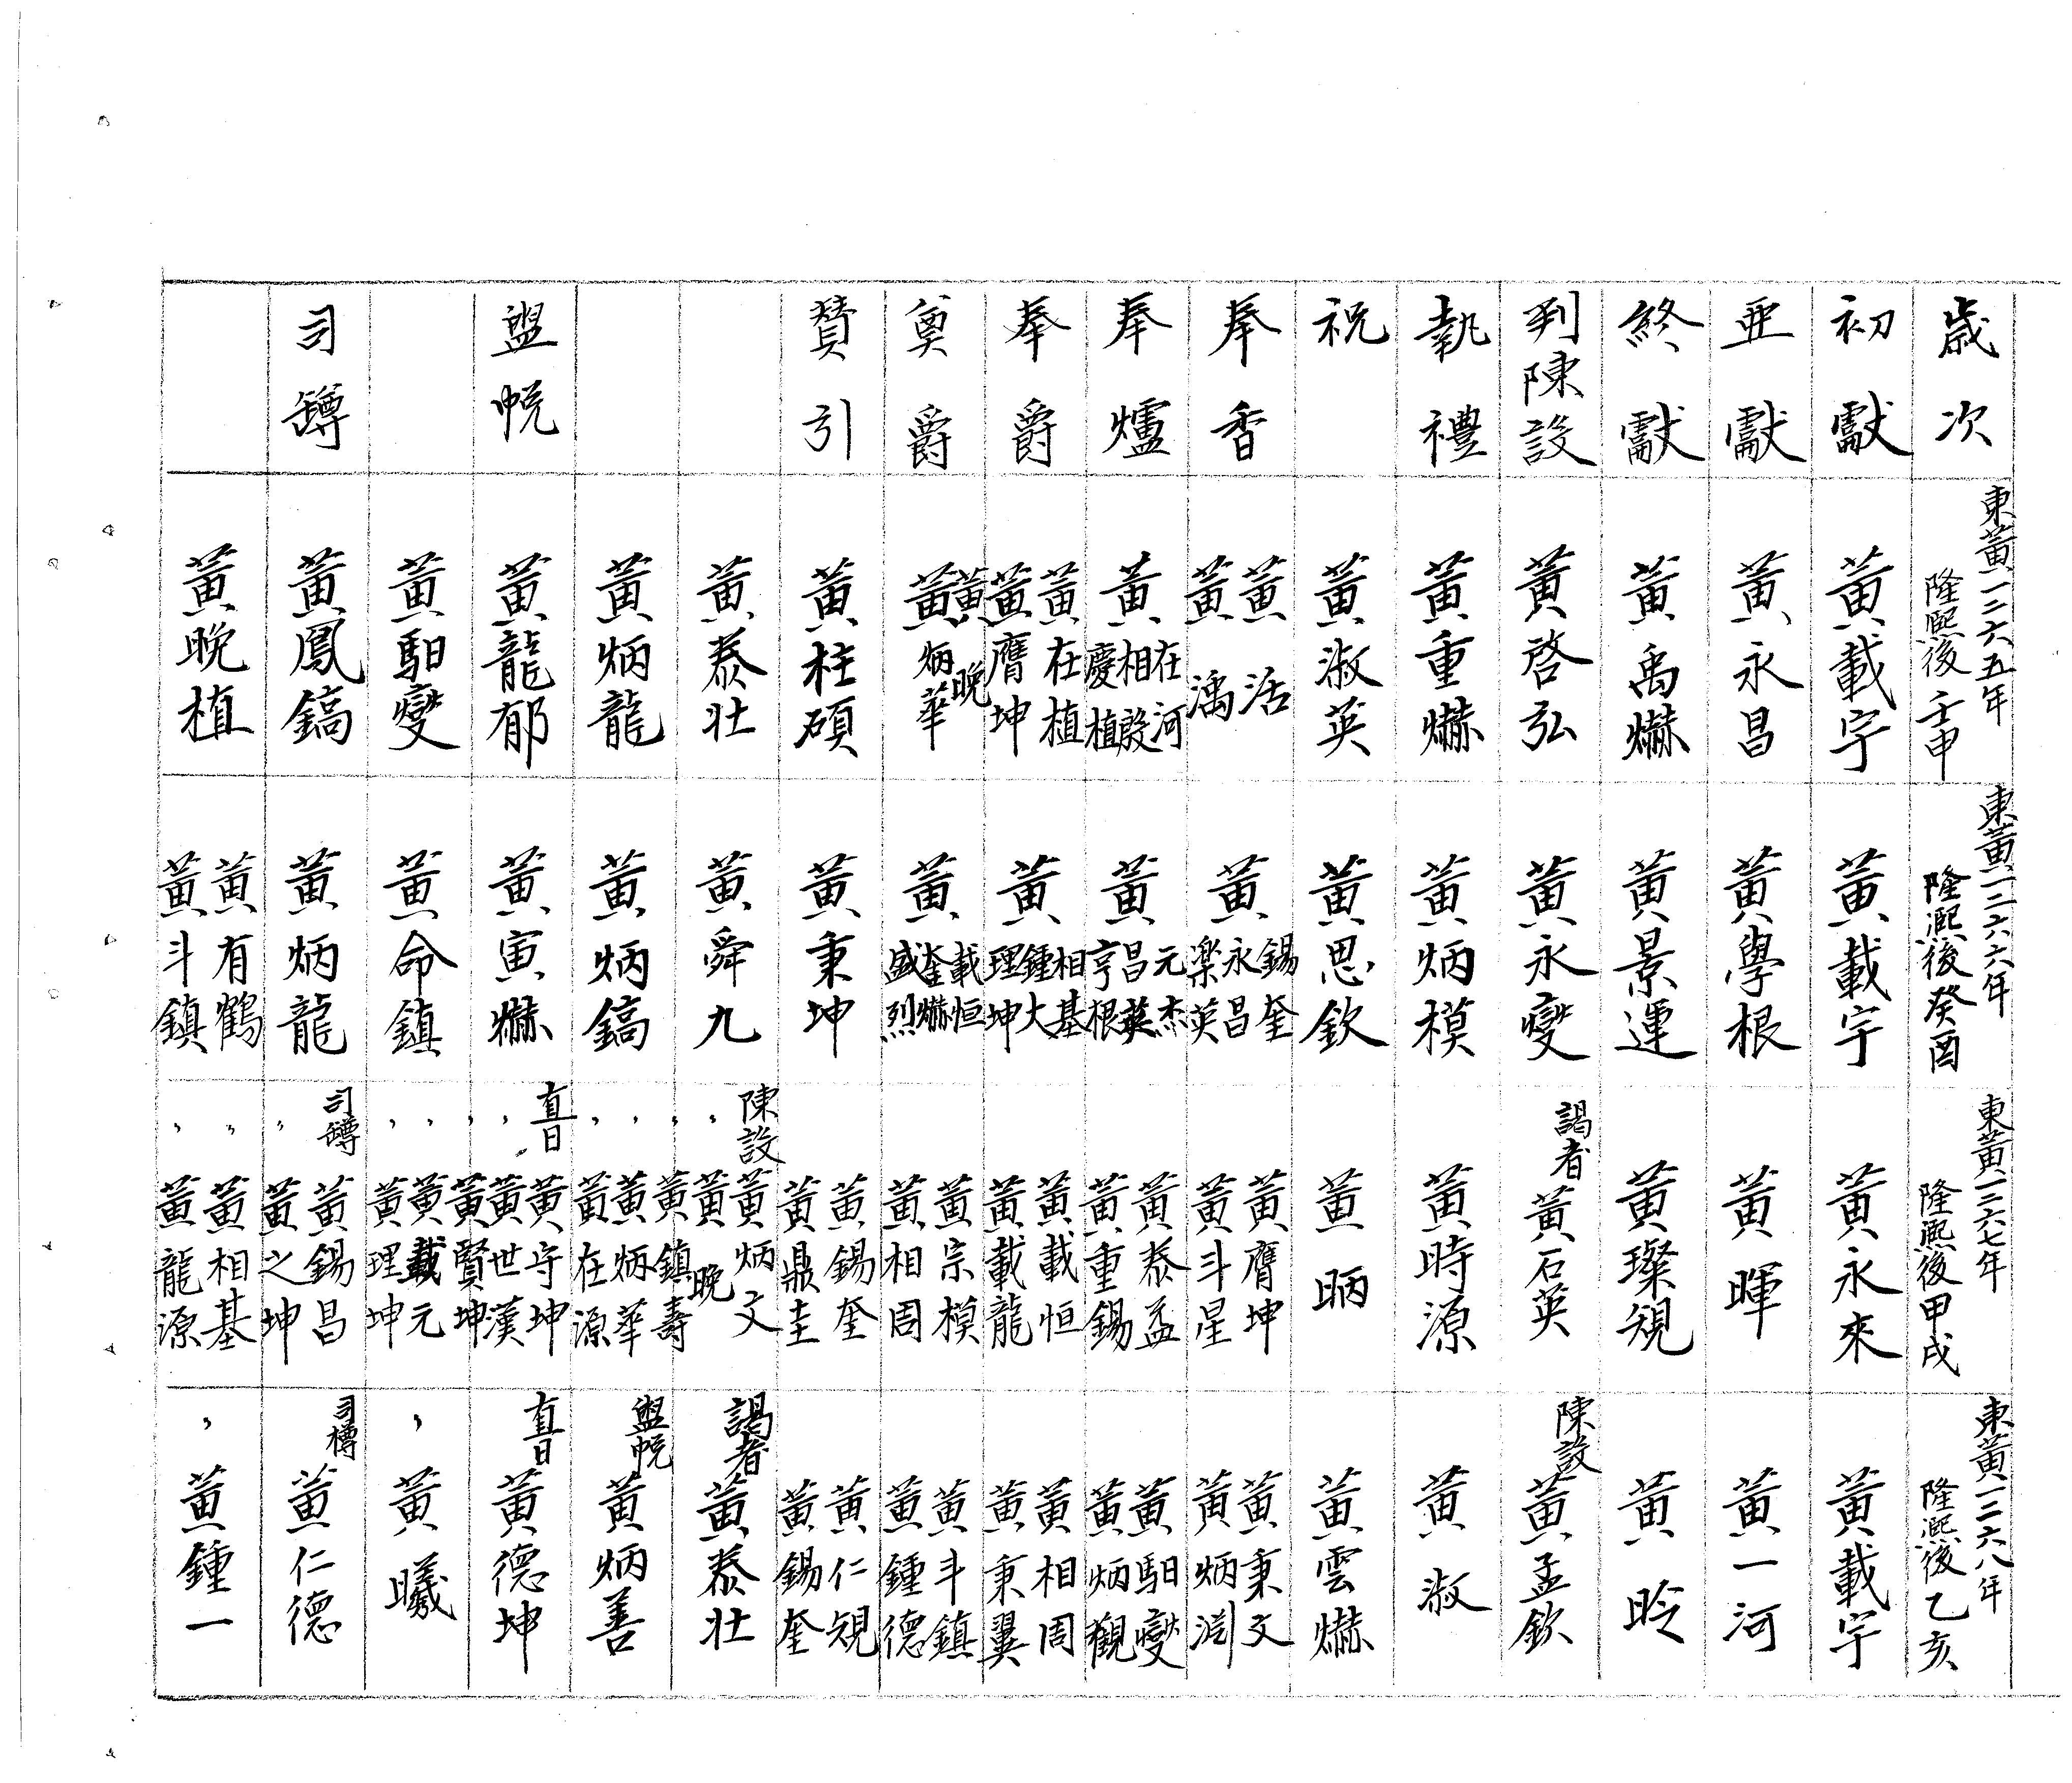 歲次 東黃一二六五年 隆熙後壬申 東黃一二六六年 隆熙後癸酉 東黃一二六七年 隆熙後甲戌 東黃一二六八年 隆熙後乙亥
初獻 黃載宇 黃載宇 黃永來 黃載宇
亞獻 黃永昌 黃學根 黃暉 黃一河
終獻 黃禹爀 黃景運 黃璨規 黃昤
判陳設 黃啓弘 黃永燮 謁者 黃石英 陳設 黃孟欽
執禮 黃重爀 黃炳模 黃時源 黃淑
祝 黃淑英 黃思欽 黃昞 黃雲爀
奉香 黃活 黃濊 黃 錫奎 永昌 楽英 黃膺坤 黃斗星 黃秉文 黃炳渕
奉爐 黃 在河 相殷 慶植 黃 元杰 昌英 亨根 黃泰益 黃重錫 黃馹燮 黃炳觀
奉爵 黃在植 黃膺坤 黃 相基 鍾大 理坤 黃載恒 黃載龍 黃相周 黃秉翼
奠爵 黃晩 黃炳華 黃 載恒 奎爀 盛烈 黃宗模 黃相周 黃斗鎮 黃鍾德
賛引 黃柱碩 黃秉坤 黃錫奎 黃鼎圭 黃仁規 黃錫奎
黃泰壯 黃舜九 陳設 黃炳文 〃 黃晩 謁者 黃泰壯
黃炳龍 黃炳鎬 〃 黃鎮壽 〃 黃炳華 〃 黃在源 盥帨 黃炳善
盥帨 黃龍郁 黃寅爀 直日 黃守坤 〃 黃世漢 〃 黃賢坤 直日 黃德坤
黃馹燮 黃命鎮 〃 黃載元 〃 黃理坤 〃 黃曦
司罇 黃鳳鎬 黃炳龍 司罇 黃錫昌 〃 黃之坤 司樽 黃仁德
黃晩植 黃有鶴 黃斗鎮 〃 黃相基 〃 黃龍源 〃 黃鍾一